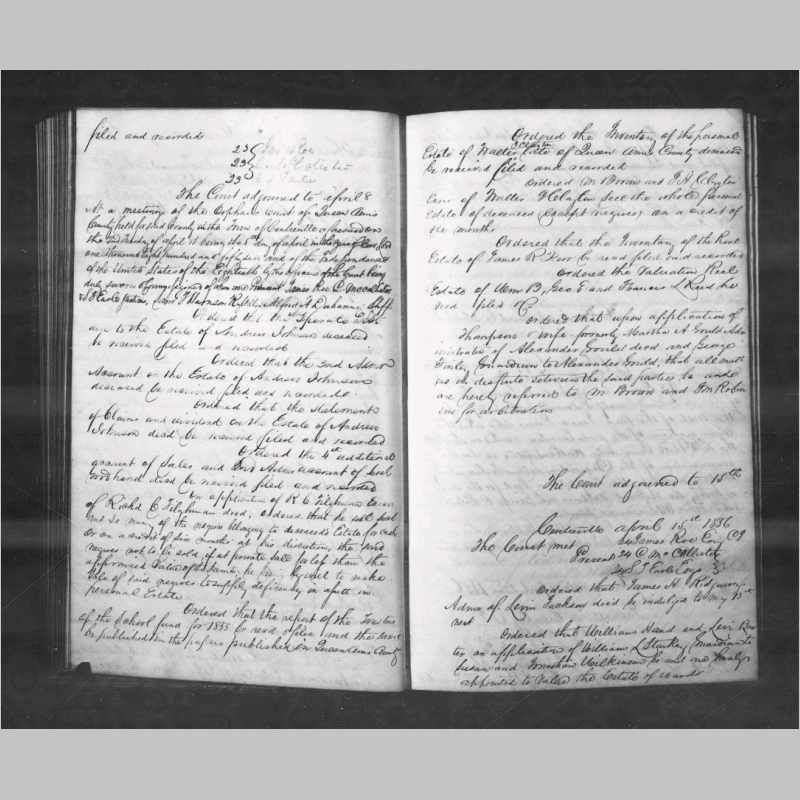 filed and recorded
23
23
23
The Court adjourned to April 8
At a meeting of the Orphans court of Queen Ann's
County held for said County at the Town of Centreville & present on
the second Tuesday of April it being the 8 day of April in the year of our Lord
one thousand eight hundred and fifty six and of the Independence
of the United States of the
duly sworn present James Roe C McCallister
Sheff
Ordered that the Separate
am to the Estate of Andrew Johnson deceased
be received filed and recorded
Ordered that the 2nd Admr
Account on the Estate of Andrew Johnson
deceased be received filed and recorded.
Ordered that the Statement
of Claims and dividend on the Estate of Andrew
Johnson decd be received filed and recorded
Ordered the 4th additional
account of Sales and Admr account of
decd be received filed and recorded
On application of R C Tilghman Exacr
of Richd C Tilghman decd, ordered that he sell
out so many of the negroes belonging to deceased's Estate for cash
or on a credit of six months at his discretion, the said
negroes not to be sold if at private sale for less than the
appraised value of the same, he
Sale of said negroes to supply deficiency in assets in
personal Estate
Ordered that the report of the Trustees
of the School fund for 1855 be read & filed and the same
be published in the papers published in Queen Anns County
Ordered the Inventory of the personal
Estate of Walter J Clayton late of Queen Anns County deceased
be received filed and recorded
Ordered M Brown and J A Clayton
Exrs of Walter J Clayton sell the whole personal
Estate of deceased (except negroes) on a credit of
six months
Ordered that the Inventory of the Real
Estate of James R be read filed and recorded
Ordered the Valuation Real
Estate of Wm B, Geo E and Frances L be recei
ved filed &c
Ordered that upon application of
Thompson & wife formerly Martha A Gould Adm
inistratrix of Alexander Gould decd and George
Finley Guardian to Alexander Gould, that all matt
ers in dispute between the said parties be and
are hereby referred to M Brown and J M Robin
son for arbitration
The Court adjourned to 15th
Centreville April 15st 1856
The Court met James Roe Esq CJ
Present C McCallister
S T Earle Esqs
Ordered that James H Ridgaway
Admr of Levin decd be indulged to May 13st
next
Ordered that Williams Hand and Levi
on application of William L Starkey Guardian to
Susan and Wilkinson be and are hereby
appointed to value the Estate of wards